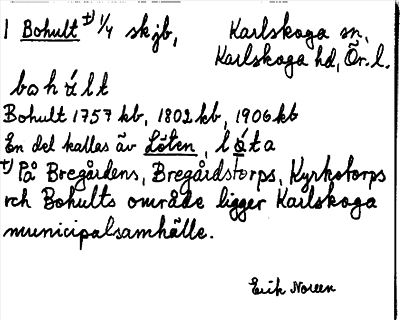 1 Bohult †) 1/4 skjb, Karlskoga sn,
Karlskoga hd, Ör. l.
bohúlt
Bohult 1757 kb, 1802 kb, 1906 kb
En del kallas äv Löten, lo̱ta
†) På Bregårdens, Bregårdstorps, Kyrkotorps
och Bohults område ligger Karlskoga
municipalsamhälle.
Erik Noreen